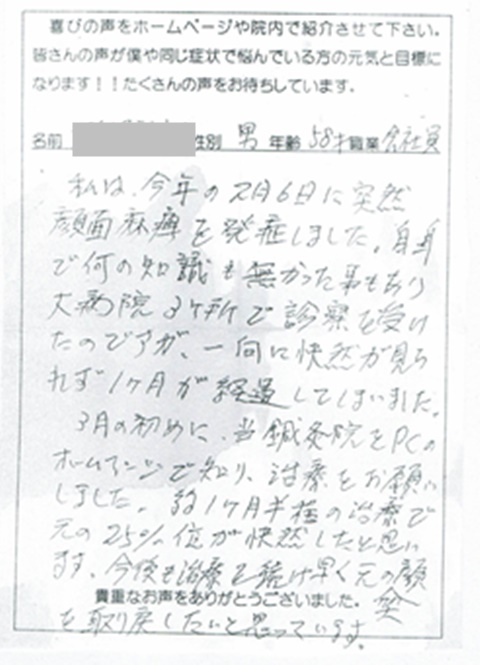 喜びの声をホームページや院内で紹介させて下さい。
皆さんの声が僕や同じ症状で悩んでいる方の元気と目標に
なります！！たくさんの声をお待ちしています。
名前 性別 男 年齢 58才 職業 会社員
私は、今年の2月6日に突然
顔面麻痺を発症しました。自身
で何の知識も無かった事もあり
大病院3ヶ所で診察を受け
たのですが、一向に快然が見ら
れず1ヶ月が経過してしまいました。
3月の初めに、当鍼灸院をPCの
ホームページで知り、治療をお願い
しました。約1ヶ月半程の治療で
元の25%位が快然したと思い
ます。今後も治療を続け早く元の顔
貴重なお声をありがとうございました。 笑
を取り戻したいと思っています。